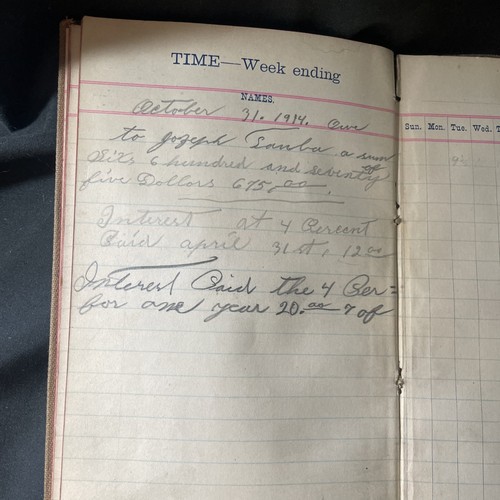 TIME—Week ending
NAMES.
October 31. 1914. Owe
to Jozeph a sum
of
Sits 6 hundred and seventy
five Dollors 675,00.
Interest at 4 Percent
Paid april 31st, 12 00
Interest Paid the 4 Per=
for one year 20.00 7 of
Sun. Mon. Tue. Wed. T